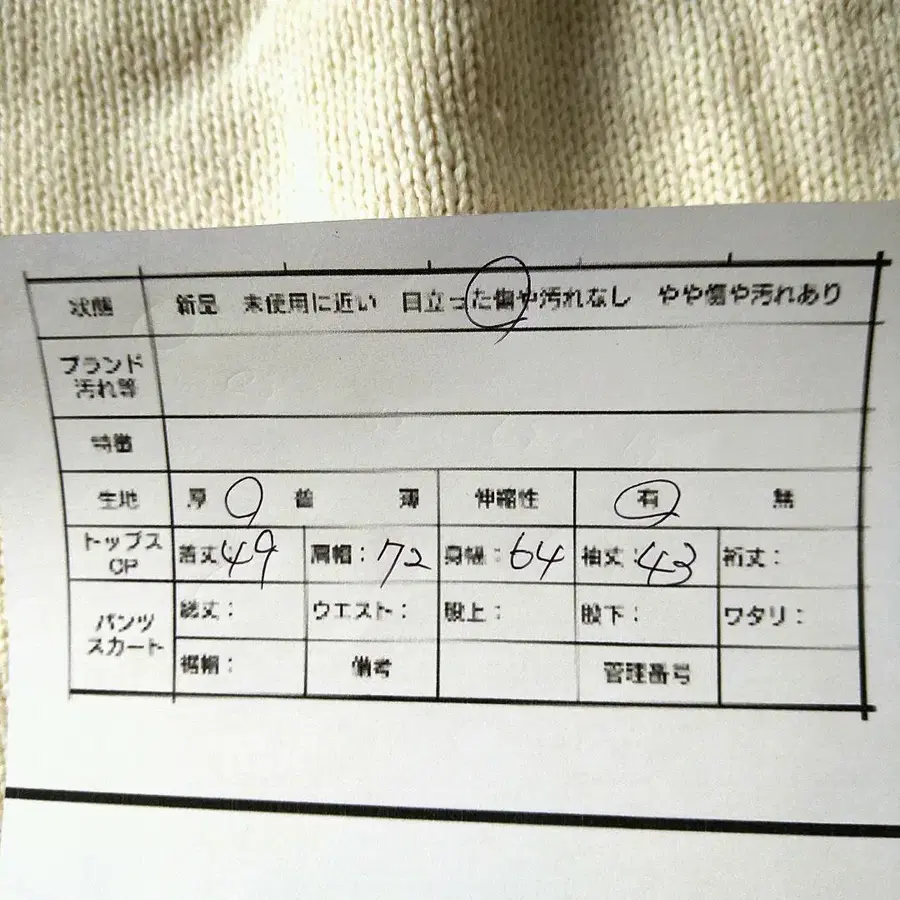 状態 新品 未使用に近い 目立った傷や汚れなし やや傷や汚れあり
ブランド
汚れ等
特徴
生地 厚 普 薄 伸縮性 有 無
トップス
OP
着丈49 肩幅:72 身幅:64 袖丈:43 裄丈:
パンツ
スカート
総丈: ウエスト: 股上: 股下: ワタリ:
裾幅: 備考 管理番号